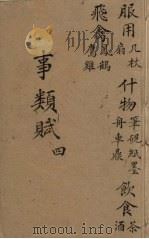 服用 几杖 扇 什物 筆硯紙墨 舟車鼎 飲食 茶 酒
飛禽 鳳鶴 鷹雞
事類賦 四